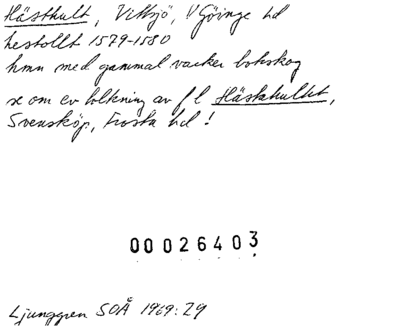 Hästhult, Vittsjö, V Göinge hd
hestollt 1579-1580
hmn med gammal vacker bokskog
se om ev tolkning av fl Hästahultet,
Svensköp, Frosta hd!
00026403
Ljunggren SOÅ 1969:29